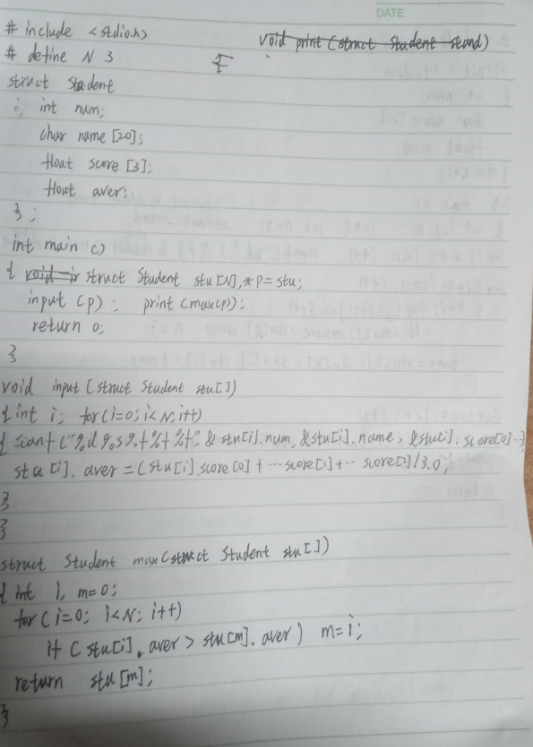 DATE
void print (struct Student stand)
# include <stdio.h>
# define N 3
struct Student
{ int num;
char name [20];
float score [3];
float aver;
};
int main ()
{ struct Student stu[N], *p=stu;
input (p); print (max(p));
return 0;
}
void input (struct Student stu[])
{ int i; for (i=0; i<N; i++)
{ scanf ("%d %s %f %f %f", & stu[i].num, &stu[i].name, &stu[i].score[0]
stu [i]. aver = (stu[i].score[0] + ⋯score[1]+⋯ score[2])/3.0;
}
}
struct Student max (struct Student stu [])
{ int i, m=0;
for (i=0; i<N; i++)
if (stu[i]. aver > stu[m]. aver) m=i;
return stu [m];
}